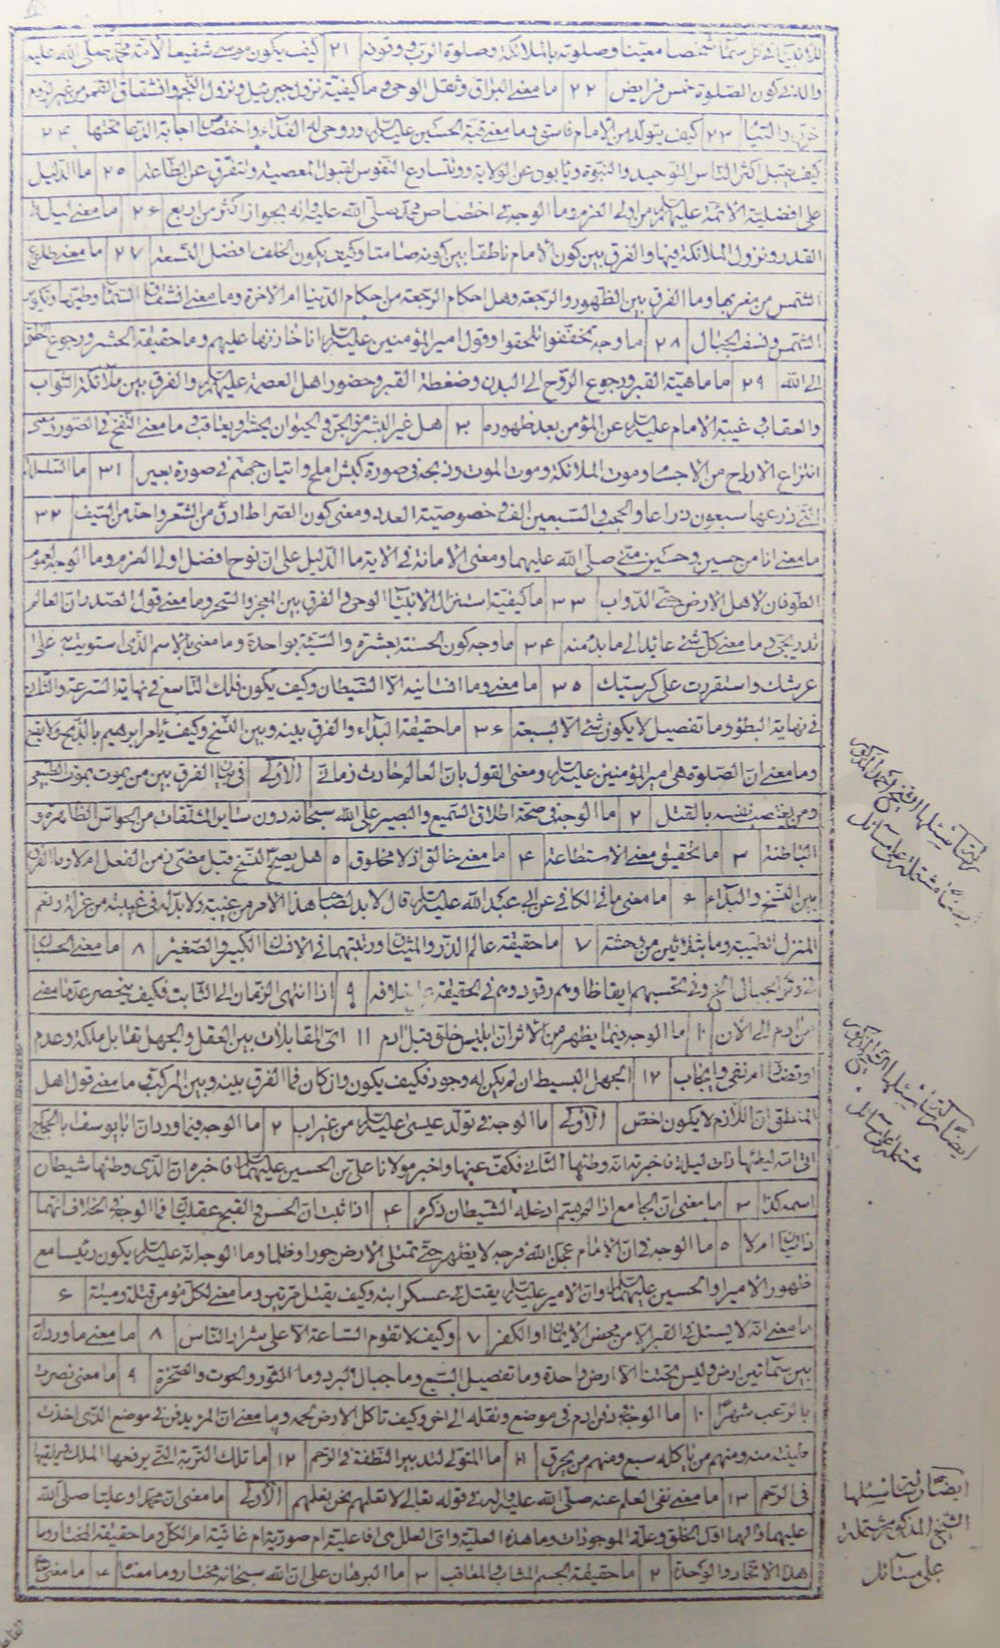 للانبياء في كل سماء شخصا معينا وصلوته بالملائكة وصلوة الرب ووقوفه ٢١ كيف يكون موسى شفيعا لامة محمد صلى الله عليه
واله في كون الصلوة خمس فرايض ٢٢ ما معنى البراق وثقل الوحي وما كيفية نزول جبرئيل ونزول النجم وانشقاق القمر من غير لزوم
خرق والتيام ٢٣ كيف يتولد من الامام فاسق وما معنى قبة الحسين عليه السلم وروحي له الفداء واختصاص اجابة الدعا تحتها ٢٤
كيف يقبل اكثر الناس التوحيد والنبوة ويابون عن الولاية وتتسارع النفوس لقبول المعصية وتتفرق عن الطاعة ٢٥ ما الدليل
على افضلية الائمة عليهم السلم من اولي العزم وما الوجه في اختصاص محمد صلى الله عليه واله بجواز اكثر من اربع ٢٦ ما معنى ليلة
القدر ونزول الملائكة فيها والفرق بين كون الامام ناطقا بين كونه صامتا وكيف يكون الخلف افضل التسعة ٢٧ ما معنى طلوع
الشمس من مغربها وما الفرق بين الظهور والرجعة وهل احكام الرجعة من احكام الدنيا ام الاخرة وما معنى انشقاق السماء وطيها وتكوير
الشمس ونسف الجبال ٢٨ ما وجه تخففوا تلحقوا وقول امير المؤمنين عليه السلم انا خازنها عليهم وما حقيقة الحشر ورجوع الخلق
الى الله ٢٩ ما ماهية القبر ورجوع الروح الى البدن وضغطة القبر وحضور اهل العصمة عليهم السلم والفرق بين ملائكة الثواب
والعقاب وغيبة الامام عليه السلم عن المؤمن بعد ظهوره ٣٠ هل غير البشر من الجن والحيوان يحشر ويعاقب وما معنى النفخ في الصور ومعنى
انتزاع الارواح من الاجساد وموت الملائكة وموت الموت وذبحه في صورة كبش املح واتيان جهنم في صورة بعير ٣١ ما السلسلة
التي ذرعها سبعون ذراعا والحجب والسبعين الف وخصوصية العدد ومعنى كون الصراط ادق من الشعر واحد من السيف ٣٢
ما معنى انا من حسين وحسين مني صلى الله عليهما ومعنى الامانة في الاية ما الدليل على ان نوحا افضل اولي العزم وما الوجه لعموم
الطوفان لاهل الارض حتى الدواب ٣٣ ما كيفية استنزال الانبياء الوحي والفرق بين المعجز والسحر وما معنى قول الصدر ان العالم
تدريجي وما معنى كل شئ عايد الى ما بدء منه ٣٤ ما وجه كون الحسنة بعشرة والسيئة بواحدة وما معنى بالاسم الذي استويت به على
عرشك واستقررت على كرسيك ٣٥ ما معنى وما انسانيه الا الشيطان وكيف يكون فلك التاسع في نهاية السرعة والثلث
في نهاية البطؤ وما تفصيل لا يكون شئ الا بسبعة ٣٦ ما حقيقة البداء والفرق بينه وبين النسخ وكيف يامر ابرهيم بالذبح ولا يقع
وما معنى ان الصلوة هي امير المؤمنين عليه السلم ومعنى القول بان العالم حادث زماني الاولى في بيان الفرق بين من يموت بموت الطبيعي
ومن يغتصب نفسه بالقتل ٢ ما الوجه في صحة اطلاق السميع والبصير على الله سبحانه دون ساير المشتقات من الحواس الظاهرة و
الباطنة ٣ ما تحقيق معنى الاستطاعة ٤ ما معنى خالق اذ لا مخلوق ٥ هل يصح النسخ قبل مضي زمن الفعل ام لا وما الفرق
بين النسخ والبداء ٦ ما معنى ما في الكافي عن ابي عبد الله عليه السلم قال لا بد لصاحب هذا الامر من غيبة ولا بد له في غيبته من عزلة ونعم
المنزل الطيبة وما بثلاثين من وحشة ٧ ما حقيقة عالم الذر والميثاق ورتبتهما في الانسان الكبير والصغير ٨ ما معنى الحسبان
في وترى الجبال الخ وفي وتحسبهم ايقاظا وهم رقود وهم في الحقيقة خلافه ٩ اذا انتهى الزمان الى الثابت فكيف ينحصر عدة ما مضى
من ادم الى الان ١٠ ما الوجه فيما يظهر من الاثر ان ابليس خلق قبل ادم ١١ اي المقابلات بين العقل والجهل تقابل ملكة وعدم
او تضاد ام نفي وايجاب ١٢ الجهل البسيط ان لم يكن له وجود فكيف يكون وان كان فما الفرق بينه وبين المركب ما معنى قول اهل
المنطق ان اللازم لا يكون اخص الاولى ما الوجه في تولد عيسى عليه السلم من غير اب ٢ ما الوجه فيما ورد ان ابا يوسف ابا الحجاج
اتى امه ليطئها ذات ليلة فاخبرته انه وطئها الثاني فكف عنها واخبر مولانا علي بن الحسين عليهما السلم فاخبره ان الذي وطئها شيطان
اسمه كذا ٣ ما معنى ان الجامع اذا لم يسم ادخل الشيطان ذكره ٤ اذا ثبت ان الحسن والقبح عقليان فما الوجه في الخلاف انهما
ذاتيان ام لا ٥ ما الوجه في ان الامام عجل الله فرجه لا يظهر حتى تمتلى الارض جورا وظلما وما الوجه انه عليه السلم يكون رئيسا مع
ظهور الامير والحسين عليهما السلم وان الامير عليه السلم يقتل في عسكر ابنه وكيف يقتل مرتين وما معنى لكل مؤمن قتلة وميتة ٦
ما معنى انه لا يسئل في القبر الا من محض الايمان او الكفر ٧ وكيف لا تقوم الساعة الا على شرار الناس ٨ ما معنى ما ورد ان
بين سمائين ارض وليس تحتنا الا ارض واحدة وما تفصيل السبع وما جبال البرد وما الثور والحوت والصخرة ٩ ما معنى نصرت
بالرعب شهرا ١٠ ما الوجه في دفن ادم في موضع ونقله الى اخر وكيف تاكل الارض لحمه وما معنى ان المرء يدفن في موضع الذي اخذت
طينته منه ومنهم من ياكله سبع ومنهم من يحرق ١١ ما المتولي لتدبير النطفة في الرحم ١٢ ما تلك التربة التي يرفعها الملك فيلقيها
في الرحم ١٣ ما معنى نفي العلم عنه صلى الله عليه واله في قوله تعالى لا تعلمهم نحن نعلمهم الاولى ما معنى ان محمدا وعليا صلى الله
عليهما والهما اول الخلق وعلة الموجودات وما هذه العلية واي العلل هي افاعلية ام صورية ام غائية ام الكل وما حقيقة المختار وما
هذا الاتحاد والوحدة ٢ ما حقيقة الجسم المثاب والمعاقب ٣ ما البرهان على ان الله سبحانه مختار وما معناه ٤ ما معنى
ايضا رسالة
مشتملة على مسائل
ايضا
مشتملة على مسائل
ايضا رسالة سئلها
الشيخ المذكور مشتملة
على مسائل